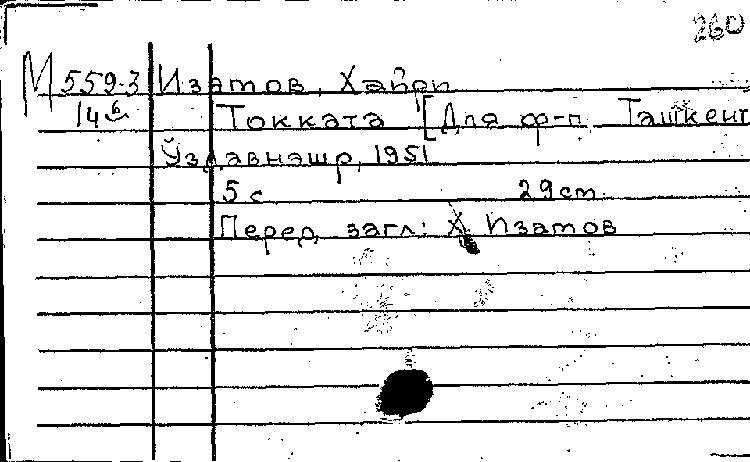 260
М 559-3 Изатов, Хайри
14б
Токката [Для ф-п. Ташкент
Ўздавнашр, 1951
5 с 29 cm.
Перед загл: Х Изатов